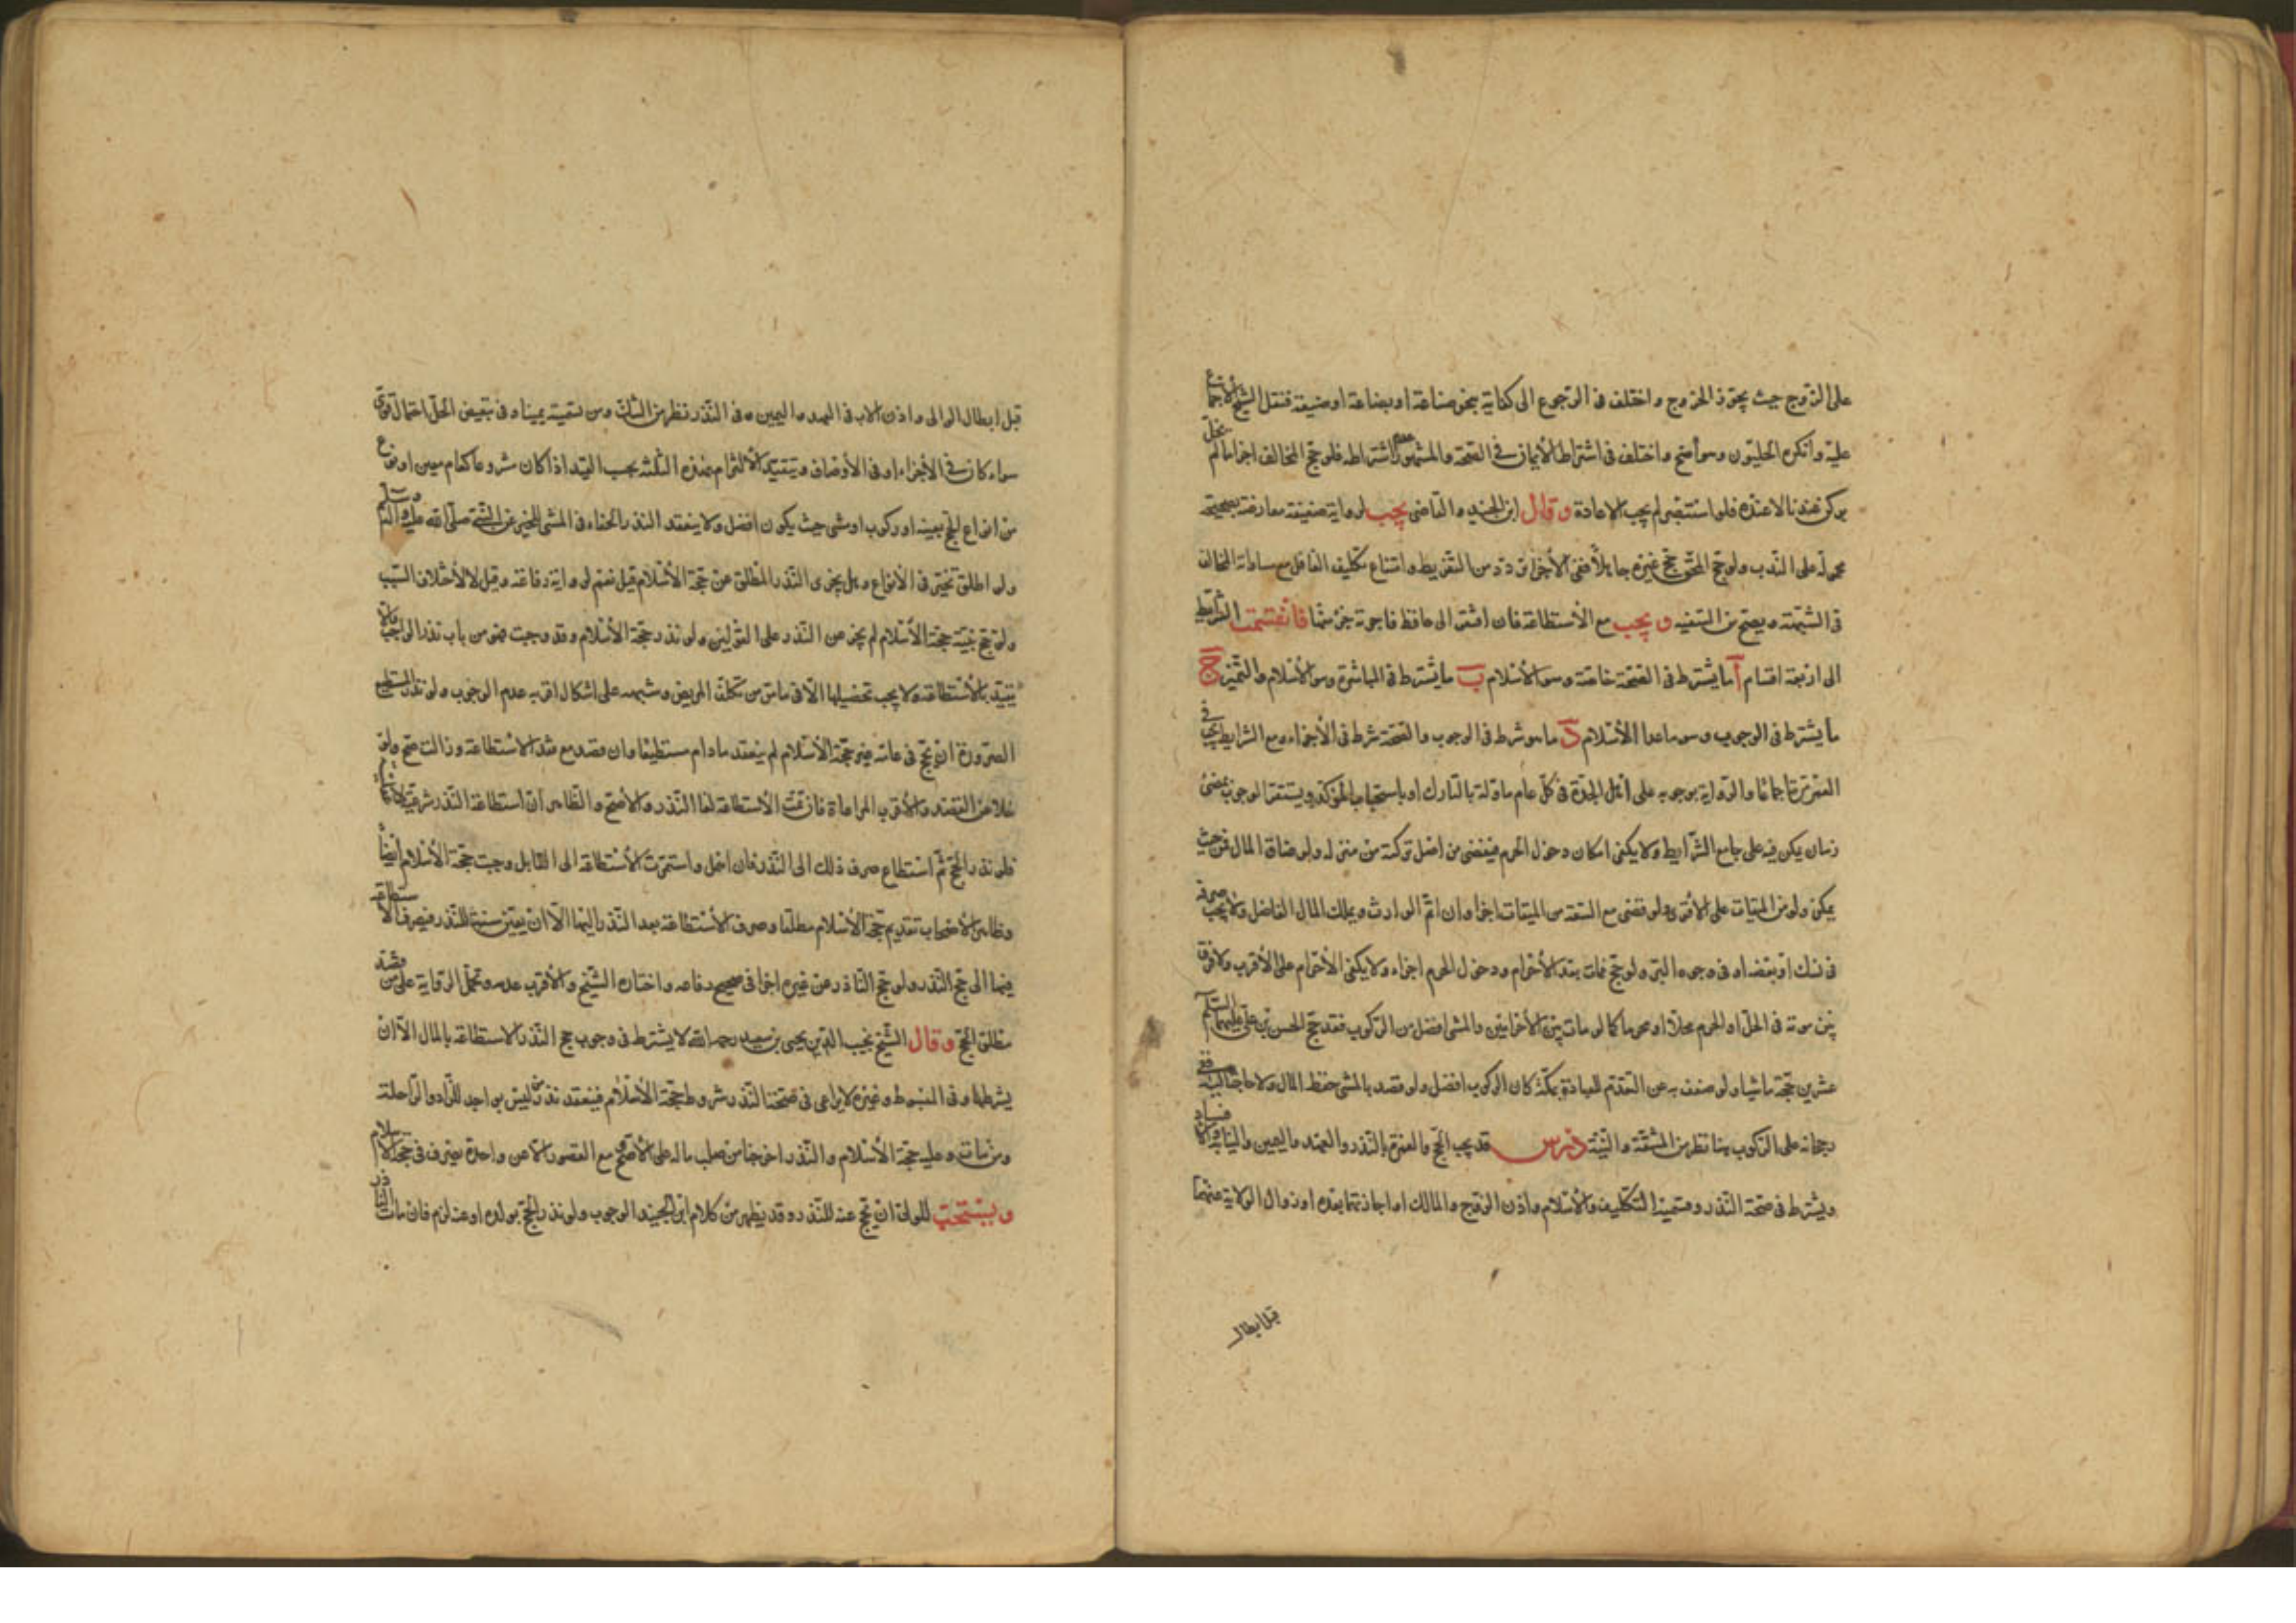 على الزوج حيث يجوز الخروج واختلف في الرجوع الى كفاية بنحو صناعة او بضاعة او ضيعة فنقل الشيخ الاجماع
عليه وانكره الحليون وهو أصح واختلف في اشتراط الايمان في الصحة والمشهور عدم اشتراطه فلو حج المخالف اجزأ ما لم يخل
بركن عندنا لا عنده فلو استبصر لم يجب الاعادة وقال ابن الجنيد والقاضي يجب لرواية ضعيفة معارضة بصحيحة
محمولة على الندب ولو حج المحق حج غيره جاهلا ففي الاجزاء تردد من التفريط وامتناع تكليف الغافل مع مساواته المخالف
في الشبهة ويصح من السفيه ويجب مع الاستطاعة فان افتقر الى حافظ فاجرته جزء منها فانقسمت الشرايط
الى اربعة اقسام آ ما يشترط في الصحة خاصة وهو الاسلام ب ما يشترط في المباشرة وهو الاسلام والتميز ج
ما يشترط في الوجوب وهو ما عدا الاسلام د ما هو شرط في الوجوب والصحة شرط في الاجزاء ومع الشرايط يجب في
العمر مرة اجماعا والرواية بوجوبه على اهل الجدة في كل عام مأولة بالتارك او باستحباب المؤكد ويستقر الوجوب بمضي
زمان يمكن فيه على جامع الشرايط ولا يكفي امكان دخول الحرم فيقضى من اصل تركته من منزله ولو ضاق المال فمن حيث
يمكن ولو من الميقات على الاقوى ولو قضى مع السعة من الميقات اجزأ وان اثم الوارث ويملك المال الفاضل ولا يجب صرفه
في نسك او بعضه او في وجوه البر ولو حج فمات بعد الاحرام ودخول الحرم اجزاء ولا يكفي الاحرام على الاقرب ولا فرق
بين موته في الحل او الحرم محلا او محرما كما لو مات بين الاحرامين والمشي افضل من الركوب فقد حج الحسن بن علي عليهما السلم
عشرين حجة ماشيا ولو ضعف به عن التقدم للعبادة بمكة كان الركوب افضل ولو قصد بالمشي حفظ المال ولا حاجة اليه
رجحانه على الركوب هنا نظر من المشقة والنية درس قد يجب الحج والعمرة بالنذر والعهد واليمين والنيابة
ويشترط في صحة النذر وقسيميه التكليف والاسلام واذن الزوج والمالك او اجازتهما بعده او زوال الولاية عنهما
قبل ابطال
قبل ابطال الوالى واذن الاب في العهد واليمين وفي النذر نظر من الشك ومن تسميته يمينا وفي تبعيض الحل احتمال قوى
سواء كان في الاجزاء او في الأوصاف وبتقييد الالتزام بهذه الثلثة يجب القيد اذا كان مشروعا كعام معين او نوع
من انواع الحج بعينه او ركوب او مشى حيث يكون افضل ولا ينعقد النذر الحفاء في المشى للخبر عن النبي صلى الله عليه وآله وسلم
ولو اطلق تخير في الانواع وهل يجزى النذر المطلق عن حجة الاسلام قيل نعم لرواية رفاعة وقيل لا لاختلاف السبب
ولو حج بنية حجة الاسلام لم يجز عن النذر على القولين ولو نذر حجة الاسلام وقد وجبت فهو من باب نذر الواجب
يتقيد بالاستطاعة ولا يجب تحصيلها الا في ما مر من تكلف المريض وشبهه على اشكال اقربه عدم الوجوب ولو نذر المستطيع
الصرورة ان يحج في عامه غير حجة الاسلام لم ينعقد ما دام مستطيعا وان قصد مع فقد الاستطاعة وزالت صح ولو
خلا عن القصد والاقرب المراعاة فان تمت الاستطاعة لغا النذر والا صح والظاهر ان استطاعة النذر شرعية
فلو نذر الحج ثم استطاع صرف ذلك الى النذر فان اهمل واستمرت الاستطاعة الى القابل وجبت حجة الاسلام ايضاً
وظاهر الاصحاب تقديم حجة الاسلام مطلقا وصرف الاستطاعة بعد النذر اليها الا ان يعين سنة للنذر فيصرف الاستطاعة
فيها الى حج النذر ولو حج الناذر عن غيره اجزا في صحيح رفاعه واختاره الشيخ والاقرب عدمه وتحمل الرواية على من قصد
مطلق الحج وقال الشيخ نجيب الدين يحيى بن سعيد رحمه الله لا يشترط في وجوب حج النذر الاستطاعة بالمال الا ان
يشرطها وفي المبسوط وغيره لا يراعى في صحة النذر شروط حجة الاسلام فينعقد نذر من ليس بواجد للزاد والراحلة
ومن مات وعليه حجة الاسلام والنذر اخرجتا من صلب ماله على الاصح مع القصور الا عن واحدة يصرف في حجة الاسلام
ويستحب للولى ان يحج عنه للنذر وقد يظهر من كلام ابن الجنيد الوجوب ولو نذر الحج بولده او عنه لزم فان مات الناذر